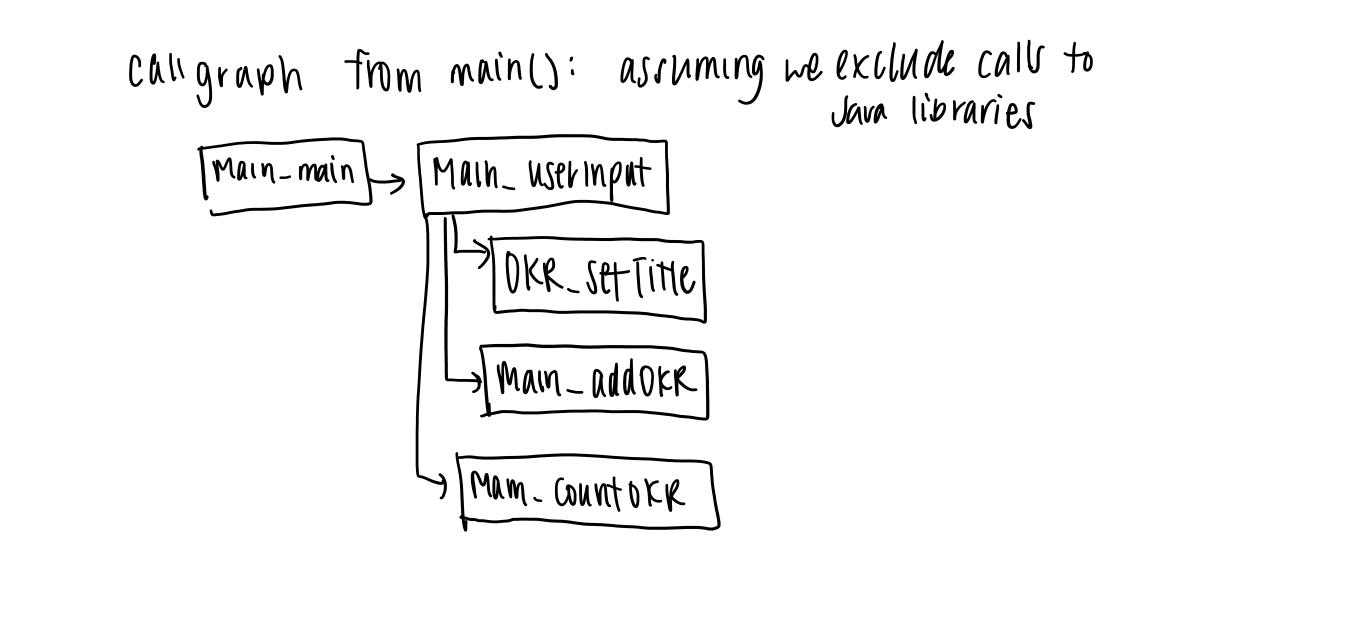 call graph from main(): assuming we exclude calls to
Java libraries
Main_main
Main_userInput
OKR_setTitle
Main_addOKR
Main_countOKR